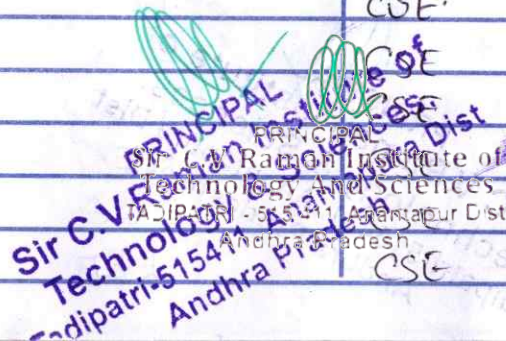 CSE
CSE
CSE
PRINCIPAL
Sir C.V Raman Institute of
Technology & Sciences
Tadipatri-515411 Anantapura Dist
Andhra Pradesh
PRINCIPAL
Sir C.V Raman Institute of
Technology And Sciences
TADIPATRI - 515411, Anantapur Dist
Andhra Pradesh
CSE